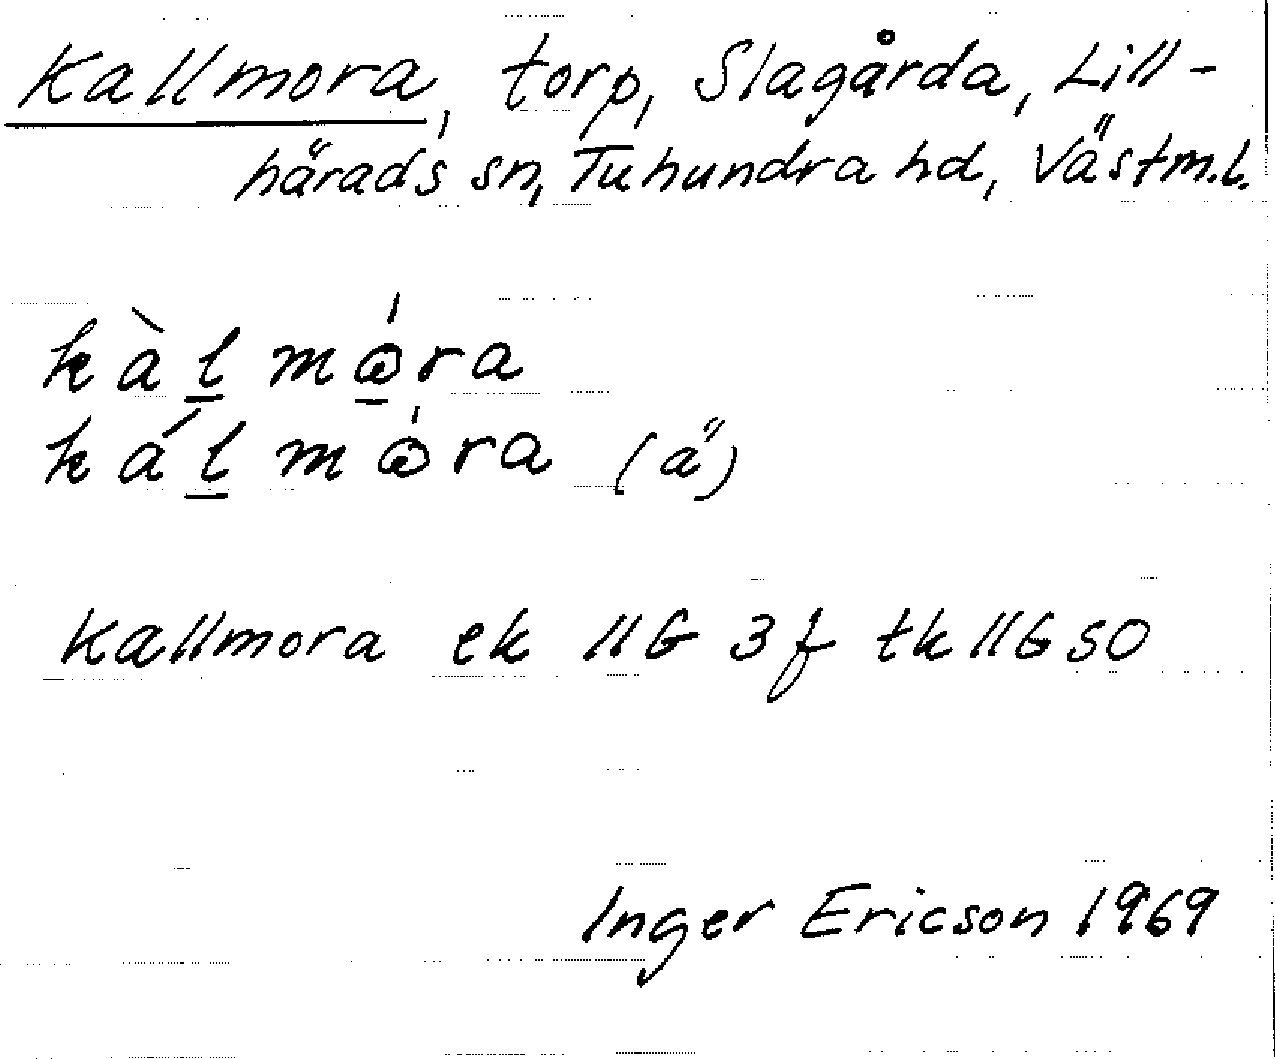 Kallmora, torp, Slagårda, Lill-
härads sn, Tuhundra hd, Västm.l.
kàl̲ mώ̲ra
kál̲ mώra (ä)
Kallmora ek 11G 3f tk 11G SO
Inger Ericson 1969